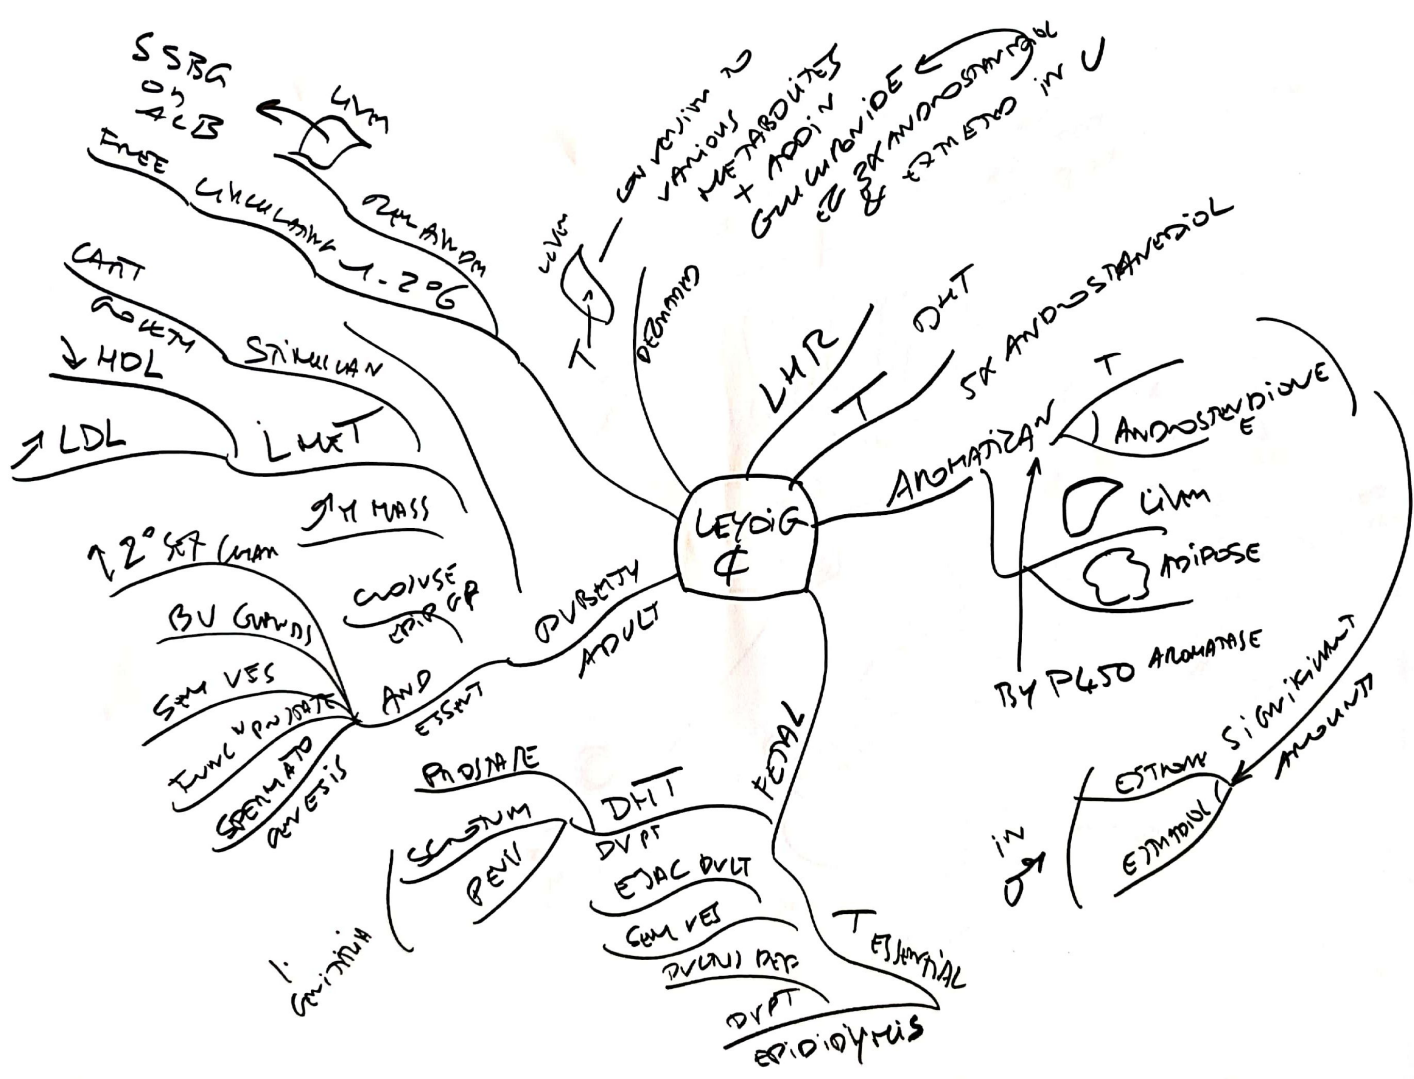 SSBG
OR
ALB
LIVER
FREE
CIRCULATING 1-2%
REMAINDER
CART
GROWTH
STIMULAN
↘ HDL
↗ LDL
L MET
↗ M MASS
CLOSUSE
EPIP GP
↑ 2° SEX CHAR
BU GLANDS
SEM VES
FUNC" PROSTATE
SPERMATO
GENESIS
AND
ESSENT
PUBERTY
ADULT
LEYDIG
¢
LIVER
T
CONVERSION TO
VARIOUS
METABOLITES
+ ADDIN
GLUCURONIDE
EG 3α ANDROSTANEDIOL
& EXCRETED IN U
DEGRADED
LHR
T
DHT
5α ANDROSTANEDIOL
AROMATIZAN
T
ANDROSTENDIONE
E
LIVER
ADIPOSE
BY P450 AROMATASE
SIGNIFICANT
AMOUNTS
ESTRONE
ESTRADIOL
IN
♂
FETAL
DHT
DVPT
PROSTATE
SCROTUM
PENIS
GENITALIA
T
ESSENTIAL
EJAC DUCT
SEM VES
DUCTUS DEF
DVPT
EPIDIDYMIS